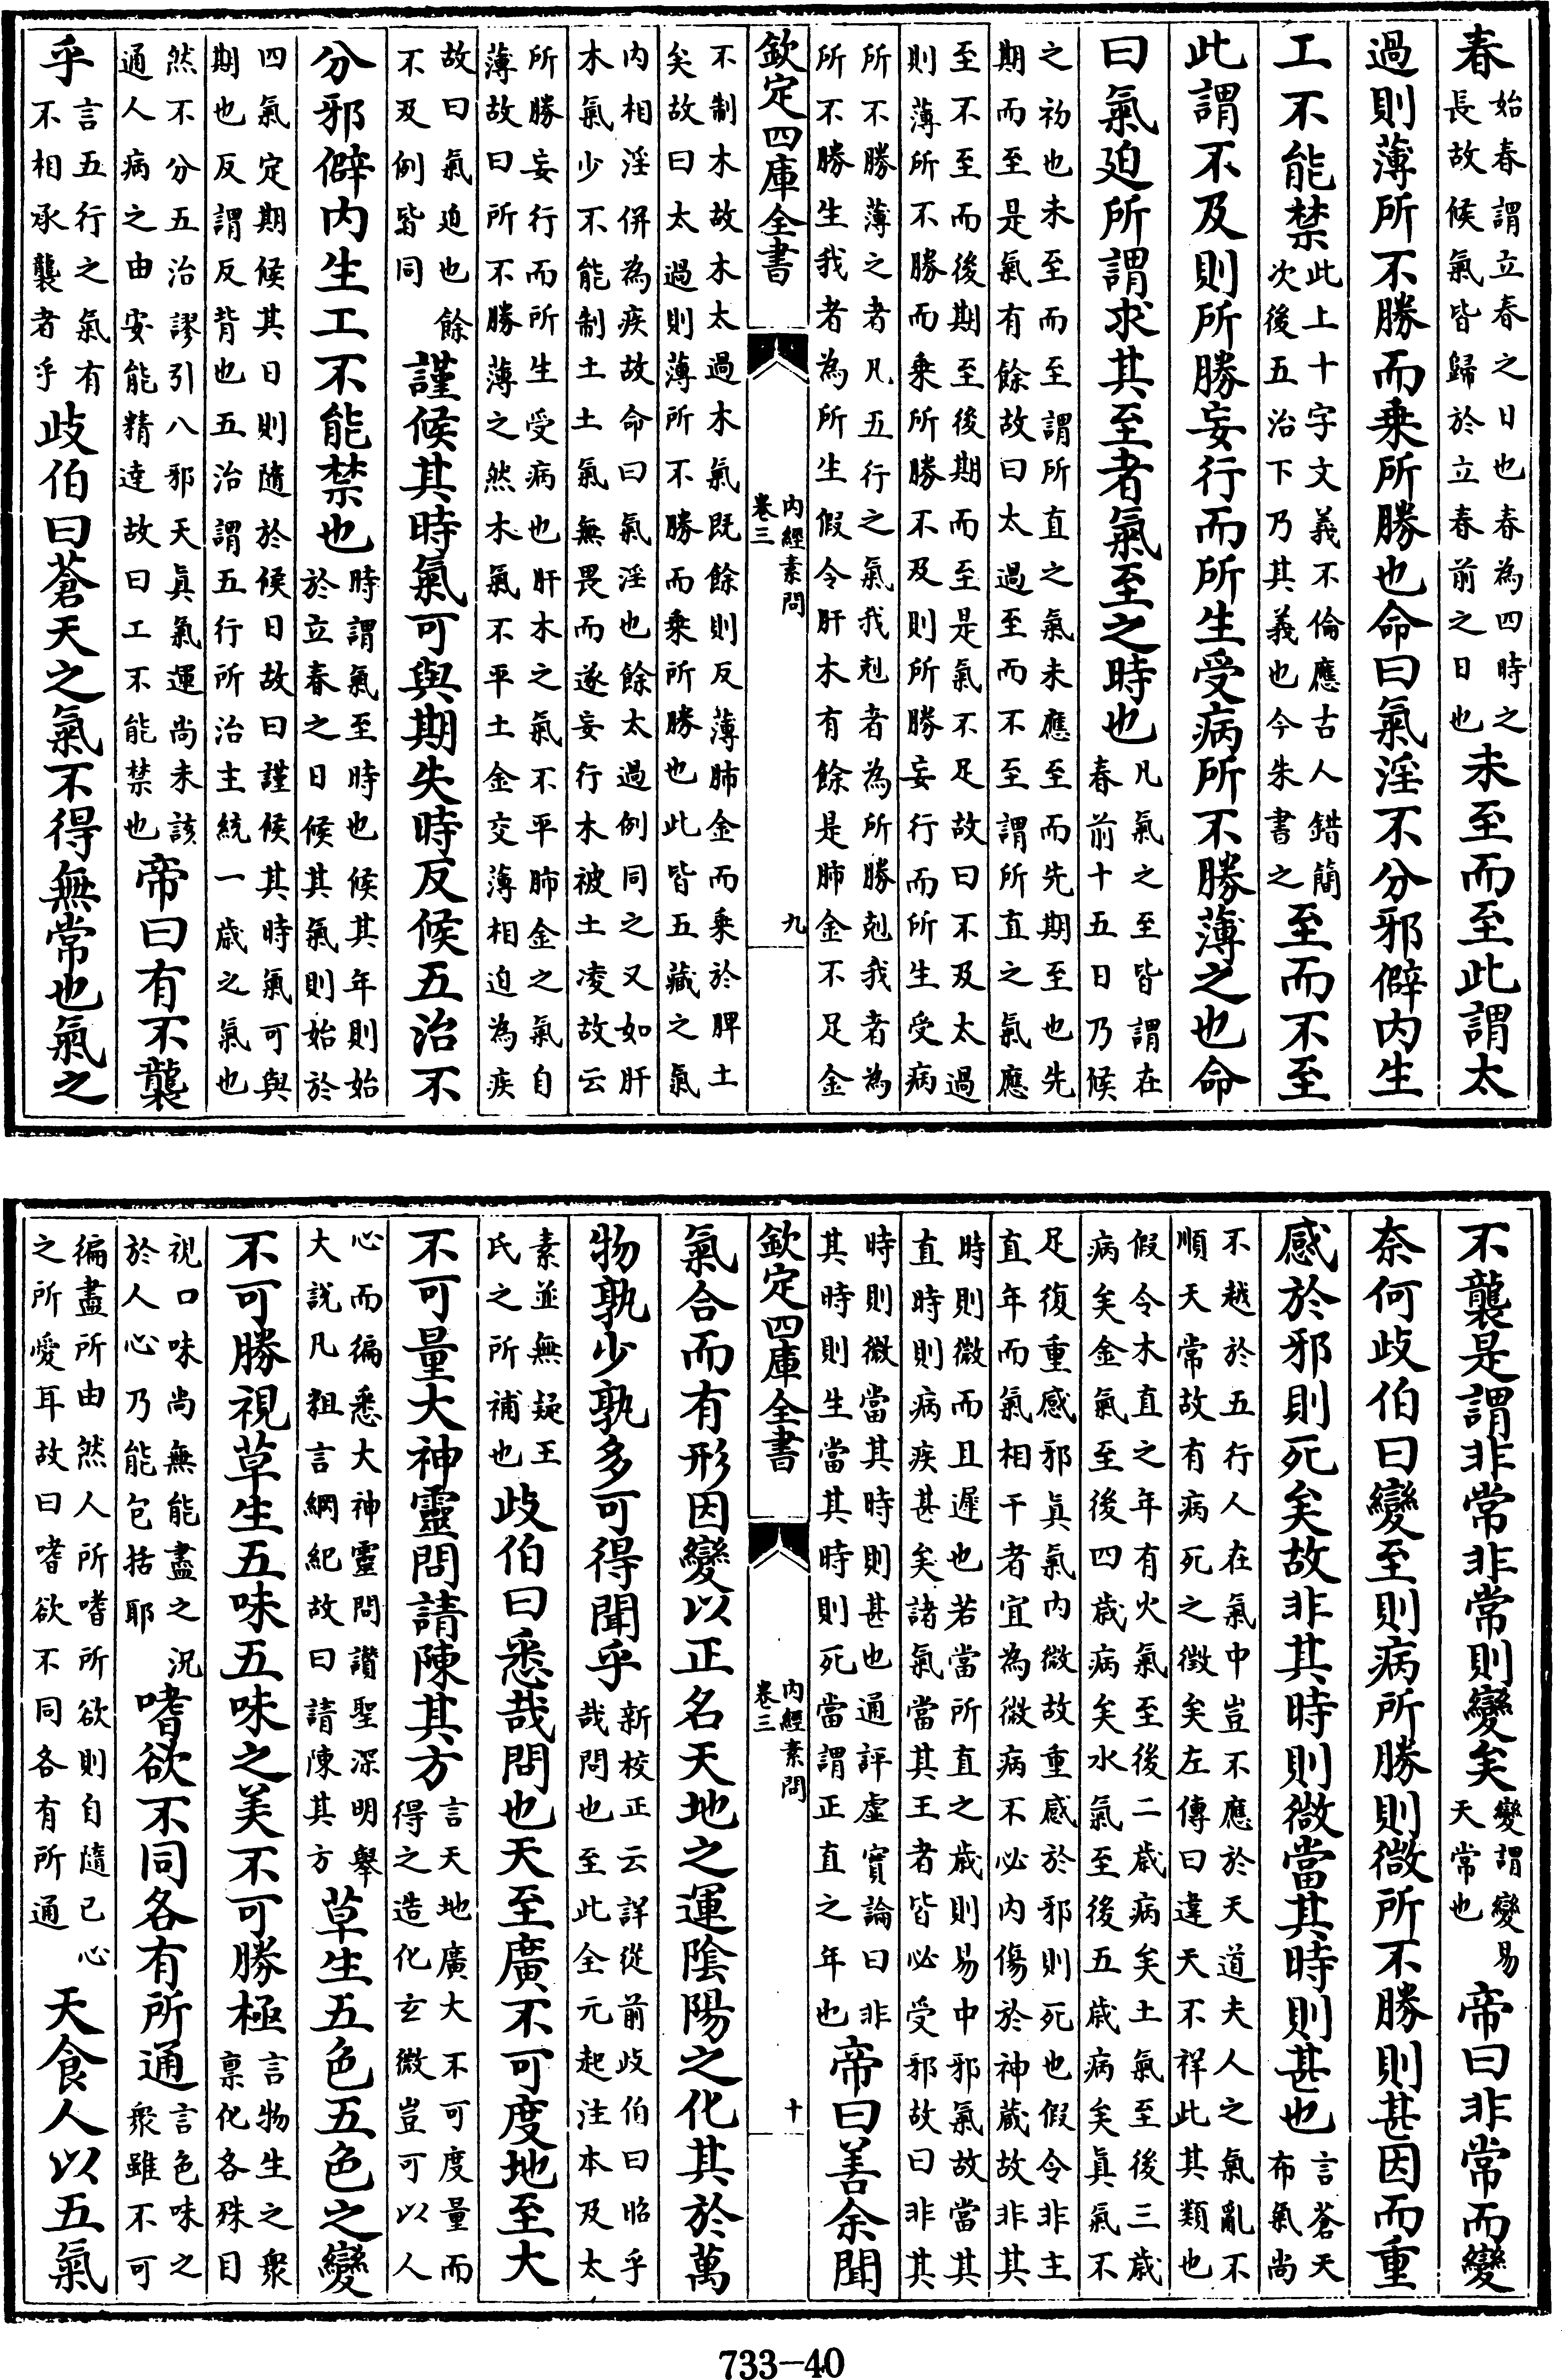 春始春謂立春之日也春為四時之長故候氣皆歸於立春前之日也未至而至此謂太
過則薄所不勝而乗所勝也命曰氣淫不分邪僻内生
工不能禁此上十字文義不倫應古人錯簡次後五治下乃其義也今朱書之至而不至
此謂不及則所勝妄行而所生受病所不勝薄之也命
曰氣廹所謂求其至者氣至之時也凡氣之至皆謂在春前十五日乃候
之初也未至而至謂所直之氣未應至而先期至也先期而至是氣有餘故曰太過至而不至謂所直之氣應
至不至而後期至後期而至是氣不足故曰不及太過則薄所不勝而乗所勝不及則所勝妄行而所生受病
所不勝薄之者凡五行之氣我剋者為所勝剋我者為所不勝生我者為所生假令肝木有餘是肺金不足金
欽定四庫全書
内經素問
卷三
九
不制木故木太過木氣既餘則反薄肺金而乗於脾土矣故曰太過則薄所不勝而乗所勝也此皆五藏之氣
内相淫併為疾故命曰氣淫也餘太過例同之又如肝木氣少不能制土土氣無畏而遂妄行木被土凌故云
所勝妄行而所生受病也肝木之氣不平肺金之氣自薄故曰所不勝薄之然木氣不平土金交薄相迫為疾
故曰氣迫也餘不及例皆同謹候其時氣可與期失時反候五治不
分邪僻内生工不能禁也時謂氣至時也候其年則始於立春之日候其氣則始於
四氣定期候其日則隨於候日故曰謹候其時氣可與期也反謂反背也五治謂五行所治主統一歲之氣也
然不分五治謬引八邪天眞氣運尚未該通人病之由安能精達故曰工不能禁也帝曰有不襲
乎言五行之氣有不相承襲者乎歧伯曰蒼天之氣不得無常也氣之
不襲是謂非常非常則變矣變謂變易天常也帝曰非常而變
奈何歧伯曰變至則病所勝則微所不勝則甚因而重
感於邪則死矣故非其時則微當其時則甚也言蒼天布氣尚
不越於五行人在氣中豈不應於天道夫人之氣亂不順天常故有病死之徴矣左傳曰違天不祥此其類也
假令木直之年有火氣至後二歲病矣土氣至後三歲病矣金氣至後四歲病矣水氣至後五歲病矣眞氣不
足復重感邪眞氣内微故重感於邪則死也假令非主直年而氣相干者宜為微病不必内傷於神藏故非其
時則微而且遲也若當所直之歲則易中邪氣故當其直時則病疾甚矣諸氣當其王者皆必受邪故曰非其
時則微當其時則甚也通評虛實論曰非其時則生當其時則死當謂正直之年也帝曰善余聞
欽定四庫全書
内經素問
卷三
十
氣合而有形因變以正名天地之運陰陽之化其於萬
物孰少孰多可得聞乎新校正云詳從前歧伯曰昭乎哉問也至此全元起注本及太
素並無疑王氏之所補也歧伯曰悉哉問也天至廣不可度地至大
不可量大神靈問請陳其方言天地廣大不可度量而得之造化玄微豈可以人
心而徧悉大神靈問讃聖深明舉大説凡粗言綱紀故曰請陳其方草生五色五色之變
不可勝視草生五味五味之美不可勝極言物生之衆禀化各殊目
視口味尚無能盡之況於人心乃能包括耶嗜欲不同各有所通言色味之衆雖不可
徧盡所由然人所嗜所欲則自隨己心之所愛耳故曰嗜欲不同各有所通天食人以五氣
733-40